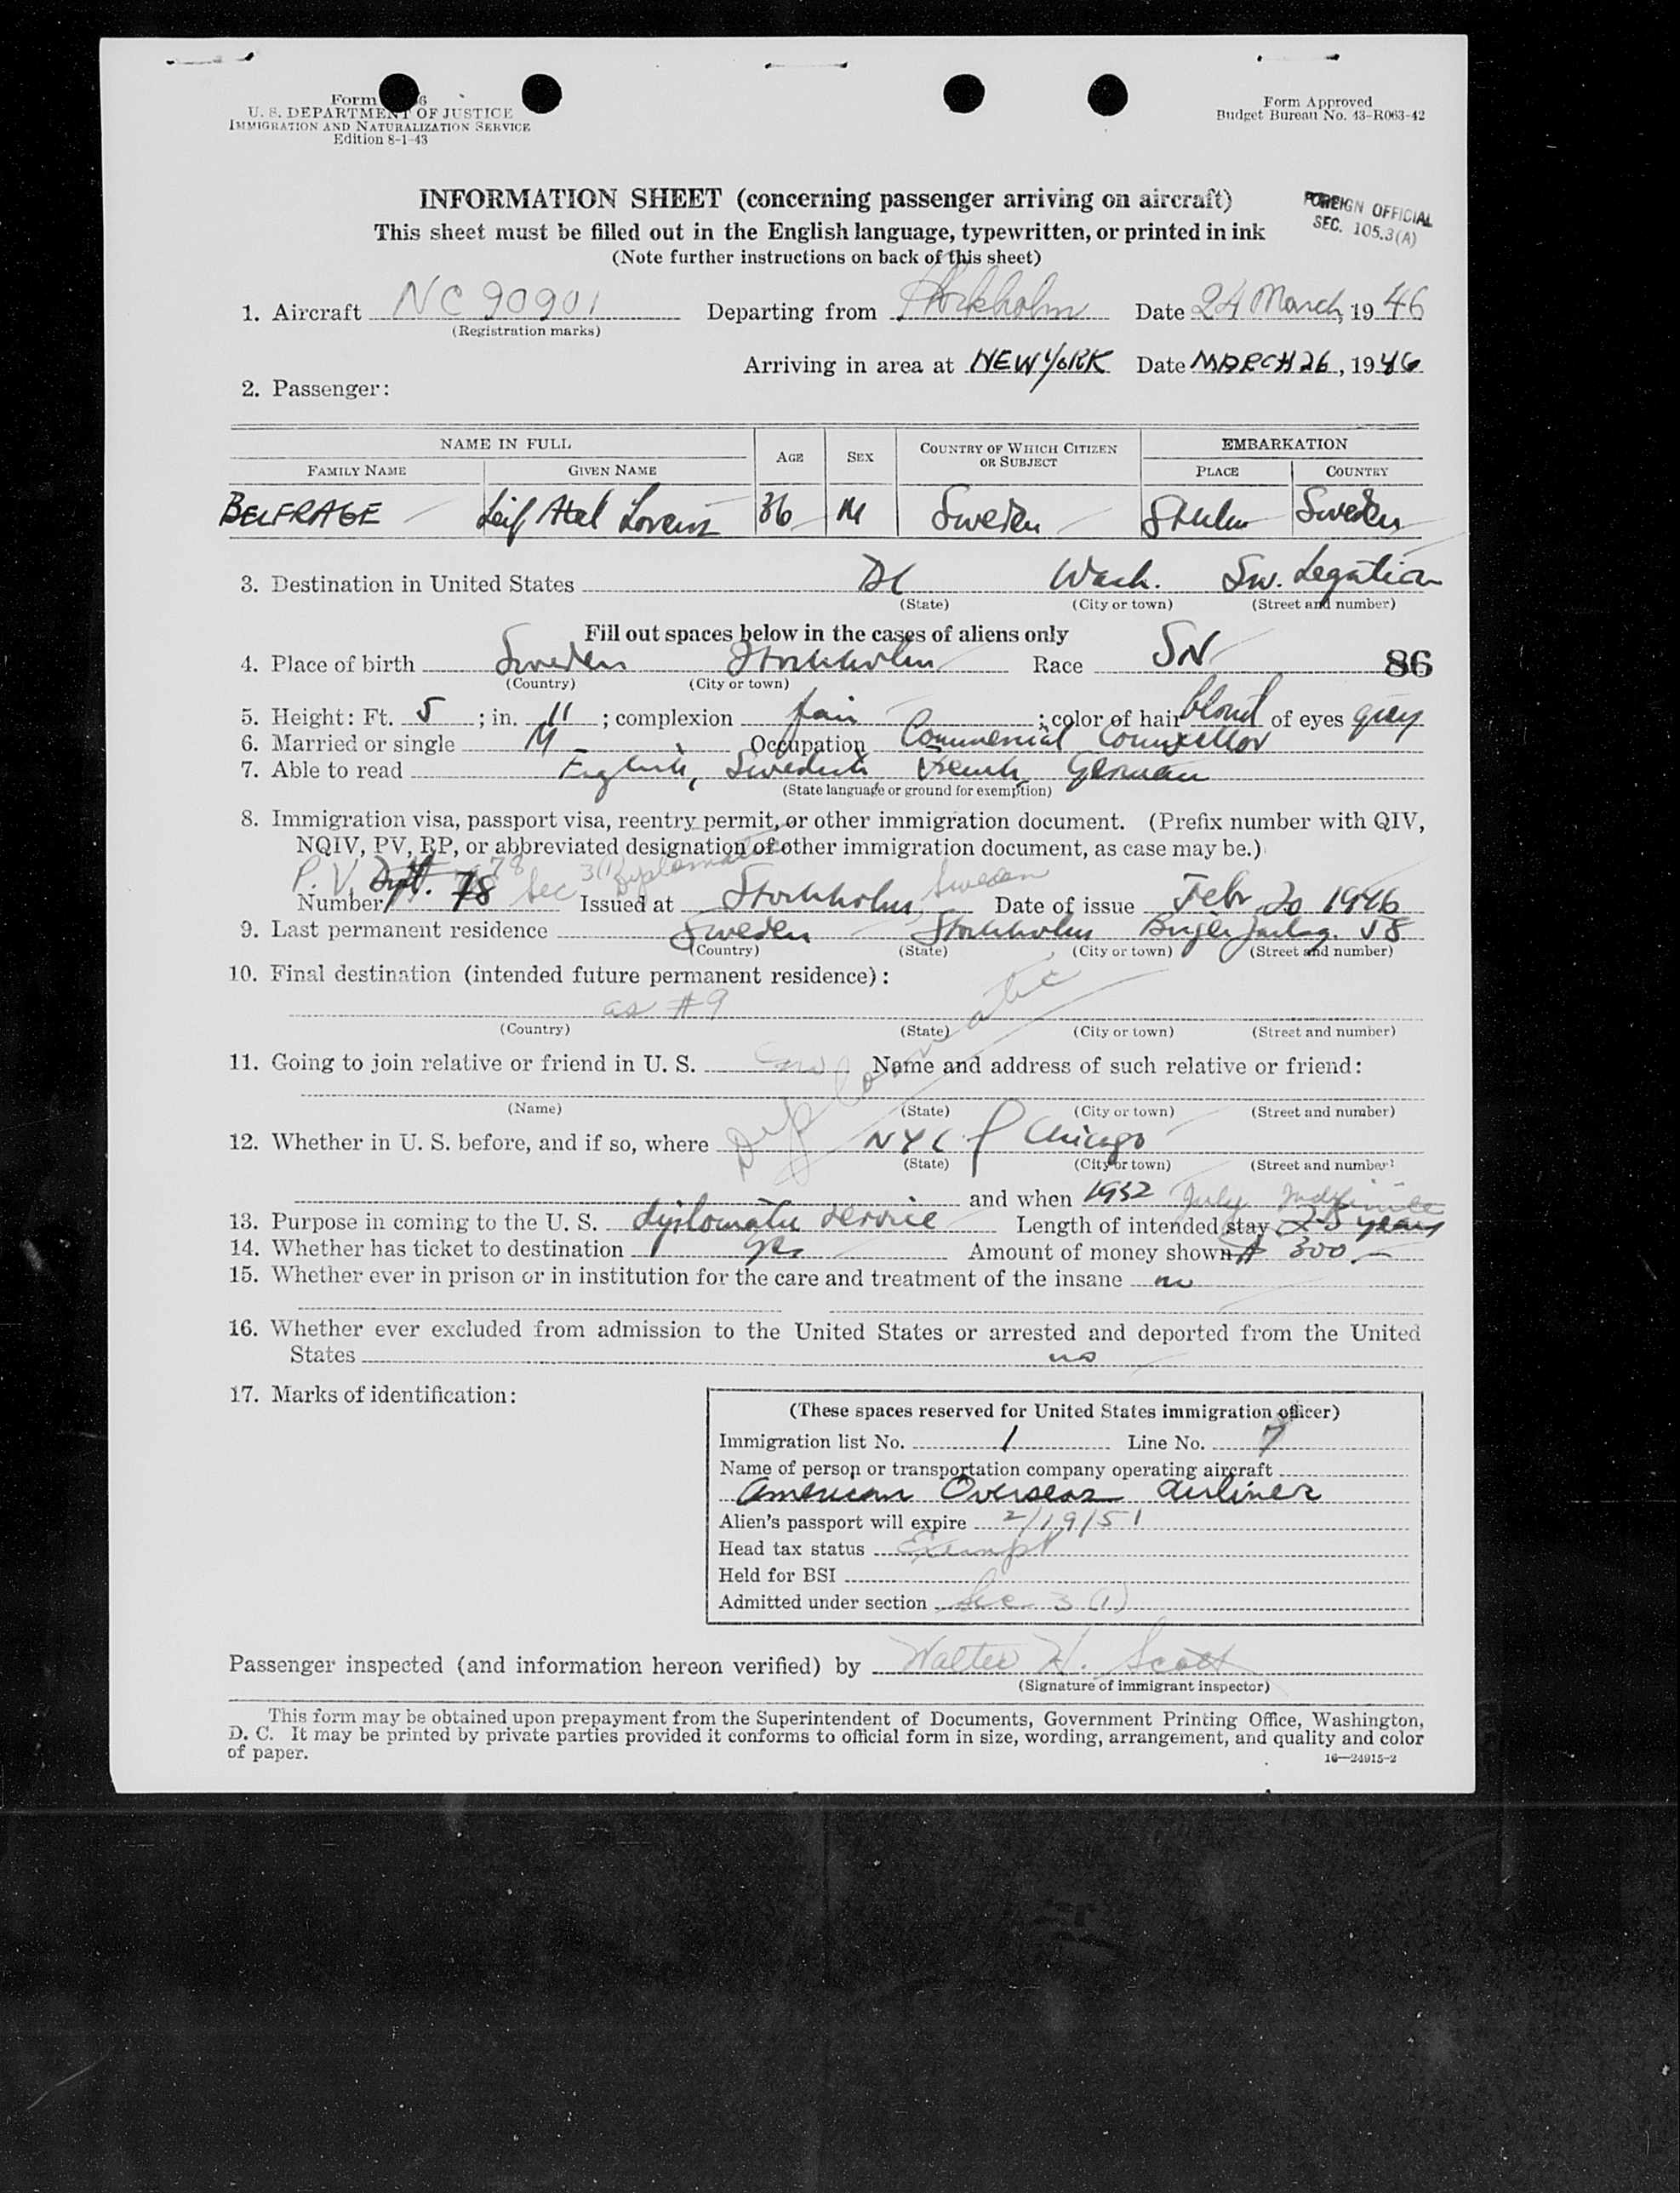 Form 6
U. S. DEPARTMENT OF JUSTICE
IMMIGRATION AND NATURALIZATION SERVICE
Edition 8-1-43
Form Approved
Budget Bureau No. 43-R063-42
INFORMATION SHEET (concerning passenger arriving on aircraft)
This sheet must be filled out in the English language, typewritten, or printed in ink
(Note further instructions on back of this sheet)
FOREIGN OFFICIAL
SEC. 105.3(A)
1. Aircraft NC 90901 Departing from Stockholm Date 24 March, 1946
(Registration marks)
Arriving in area at NEW YORK Date MARCH 26, 1946
2. Passenger:
NAME IN FULL AGE SEX COUNTRY OF WHICH CITIZEN OR SUBJECT EMBARKATION
FAMILY NAME GIVEN NAME PLACE COUNTRY
BELFRAGE Leif Axel Lorenz 36 M Sweden Sthlm Sweden
3. Destination in United States DC Wash. Sw. Legation
(State) (City or town) (Street and number)
Fill out spaces below in the cases of aliens only
4. Place of birth Sweden Stockholm Race SN 86
(Country) (City or town)
5. Height: Ft. 5; in. 11; complexion fair; color of hair blond of eyes grey
6. Married or single M Occupation Commercial Counsellor
7. Able to read English, Swedish, French, German
(State language or ground for exemption)
8. Immigration visa, passport visa, reentry permit, or other immigration document. (Prefix number with QIV,
NQIV, PV, RP, or abbreviated designation of other immigration document, as case may be.)
P. V. 78 Sec 3(1) Diplomatic Sweden
Number 78 Issued at Stockholm Date of issue Febr 20 1946
9. Last permanent residence Sweden Stockholm Birger Jarlsg. 58
(Country) (State) (City or town) (Street and number)
10. Final destination (intended future permanent residence):
as #9
(Country) (State) (City or town) (Street and number)
Diplomatic
11. Going to join relative or friend in U. S. Name and address of such relative or friend:
(Name) (State) (City or town) (Street and number)
12. Whether in U. S. before, and if so, where NYC Chicago
(State) (City or town) (Street and number)
and when 1932 July Indefinite
13. Purpose in coming to the U. S. diplomatic service Length of intended stay years
14. Whether has ticket to destination yes Amount of money shown $ 300.—
15. Whether ever in prison or in institution for the care and treatment of the insane no
16. Whether ever excluded from admission to the United States or arrested and deported from the United
States no
17. Marks of identification:
(These spaces reserved for United States immigration officer)
Immigration list No. 1 Line No. 7
Name of person or transportation company operating aircraft
American Overseas Airlines
Alien's passport will expire 2/19/51
Head tax status Exempt
Held for BSI
Admitted under section Sec 3 (1)
Passenger inspected (and information hereon verified) by Walter H. Scott
(Signature of immigrant inspector)
This form may be obtained upon prepayment from the Superintendent of Documents, Government Printing Office, Washington,
D. C. It may be printed by private parties provided it conforms to official form in size, wording, arrangement, and quality and color
of paper.
16—24915-2